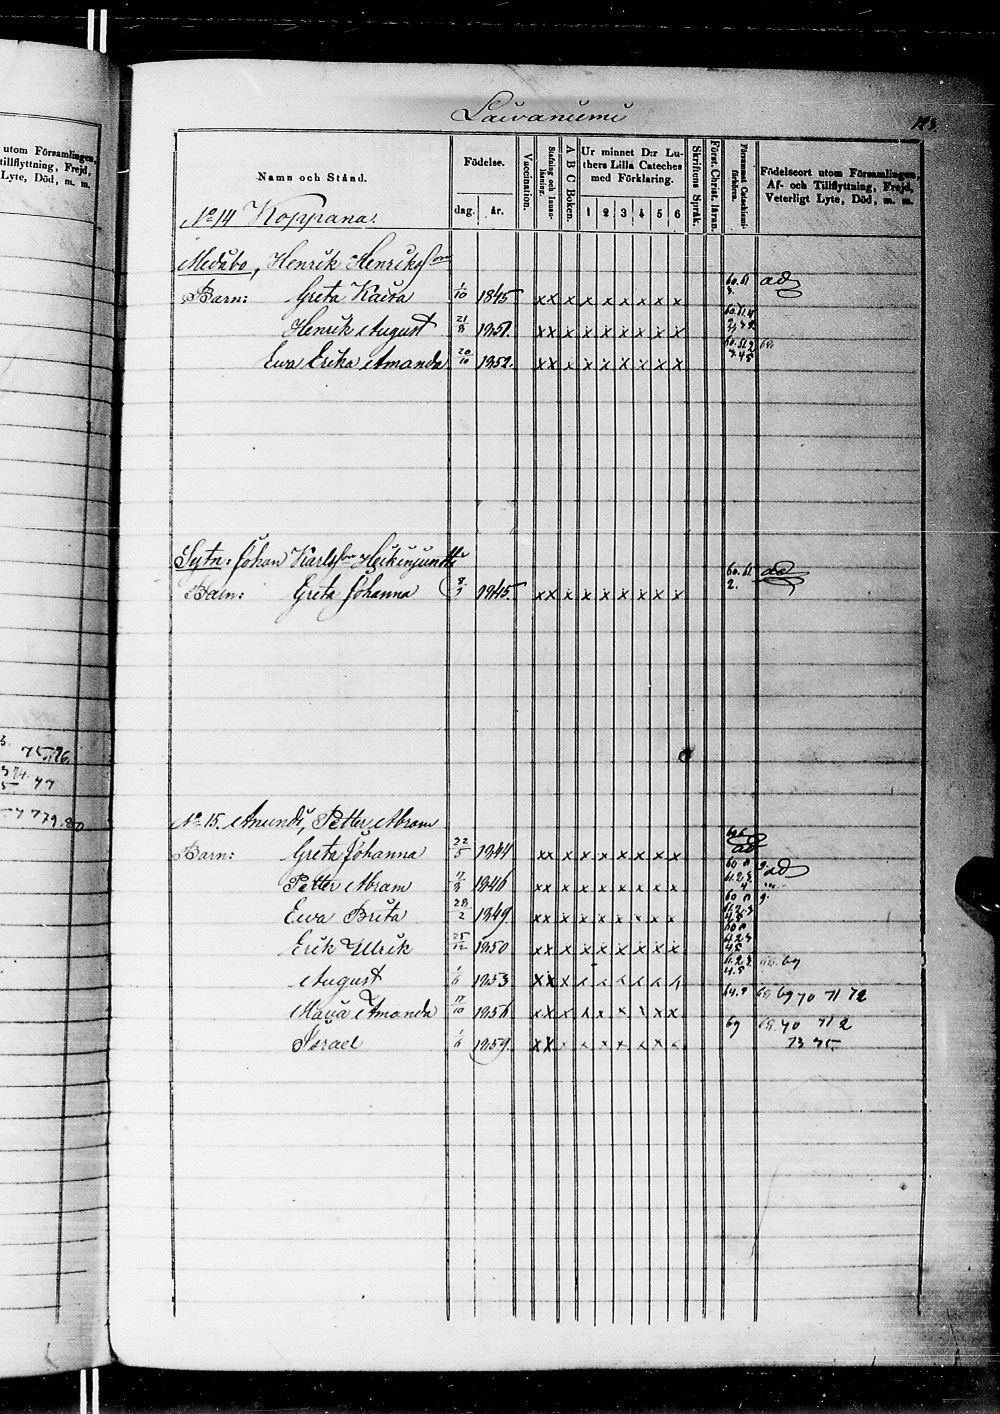 utom Församlingen,
tillflyttning, Frejd,
Lyte, Död, m. m.
75.76.
77
7 779.80
Laivaniemi
113.
Namn och Stånd.
Födelse.
dag. år.
Vaccination.
Stafning och Innanläsning.
A B C Boken.
Ur minnet D:r Luthers Lilla Cateches med Förklaring.
1 2 3 4 5 6
Skriftens Språk.
Först. Christ. läran.
Försummat Catechismiförhören.
Födelseort utom Församlingen,
Af- och Tillflyttning, Frejd,
Veterligt Lyte, Död, m. m.
No 14 Koppana.
Medåbo, Henrik Henriksson
Barn: Greta Kaisa 1/10 1845 x x x x x x x x x 60.61 ad
Henrik August 21/8 1851. x x x x x x x x x
Ewa Erika Amanda 20/10 1852. x x x x x x x x x
Sytn: Johan Karlsson Heikinjuntti
Barn: Greta Johanna 1845. x x x x x x x x x 60.61 2. ad
No 15. Anundi, Petter Abram
Barn: Greta Johanna 22/5 1844 x x x x x x x x x ad
Petter Abram 1846 x x x x x x x x x ad
Ewa Brita 28/2 1849. x x x x x x x x x
Erik Ulrik 25/12 1850 x x x x x x x x x
August 1/6 1853 x x x x x x x x x 69
Maria Amanda 17/10 1856 x x x x x x x x x 69 70 71 72
Israel 1/6 1859. x x x x x x x x x 69 70 71 2
73 75